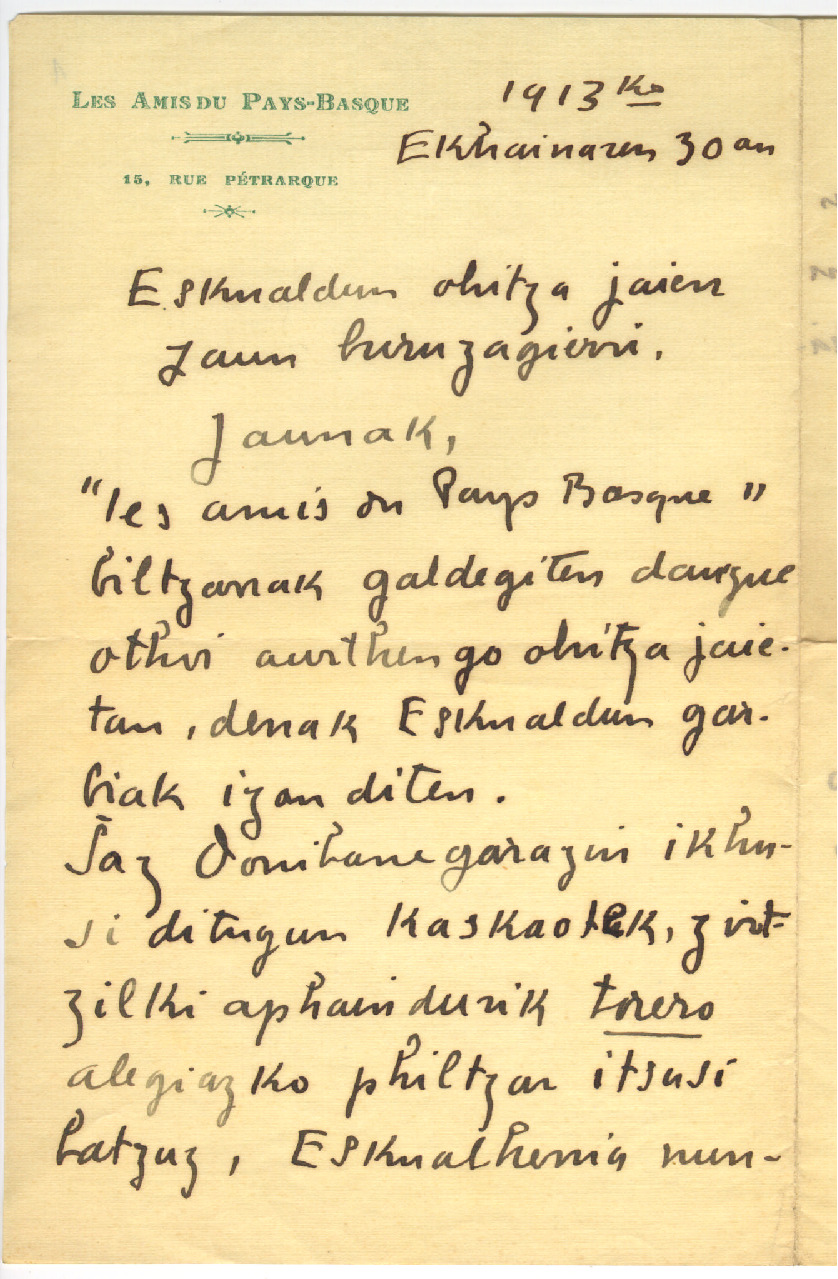 LES AMIS DU PAYS-BASQUE
15, RUE PÉTRARQUE
1913ko
Ekhainaren 30an
Eskualdun ohitza jaien
Jaun buruzagieri.
Jaunak,
"les amis du Pays Basque"
biltzarrak galdegiten dauzue
othoi aurthengo ohitza jaie-
tan, denak Eskualdun gar-
biak izan diten.
Jaz Donibane garazin ikhu-
si ditugun kaskaotek, zirt-
zilki aphaindurik torero
alegiazko philtzar itsusi
batzuz, Eskualherria nun-